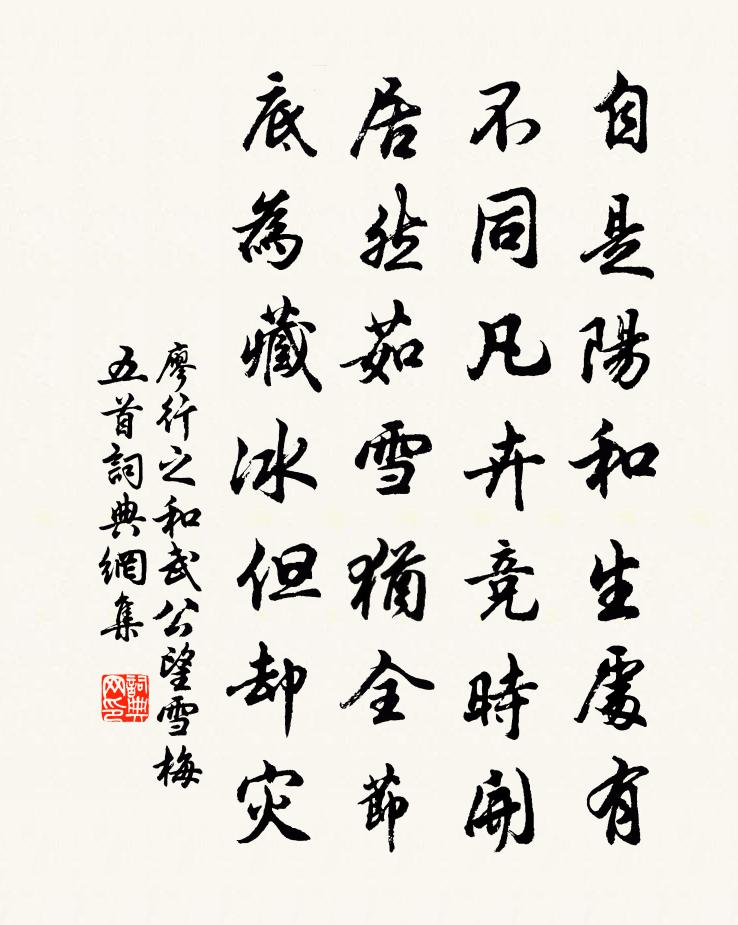 自是陽和生處有
不同凡卉競時開
居然茹雪猶全節
底為藏冰但却灾
廖行之和武公望雪梅
五首詞典網集
詞典
网印